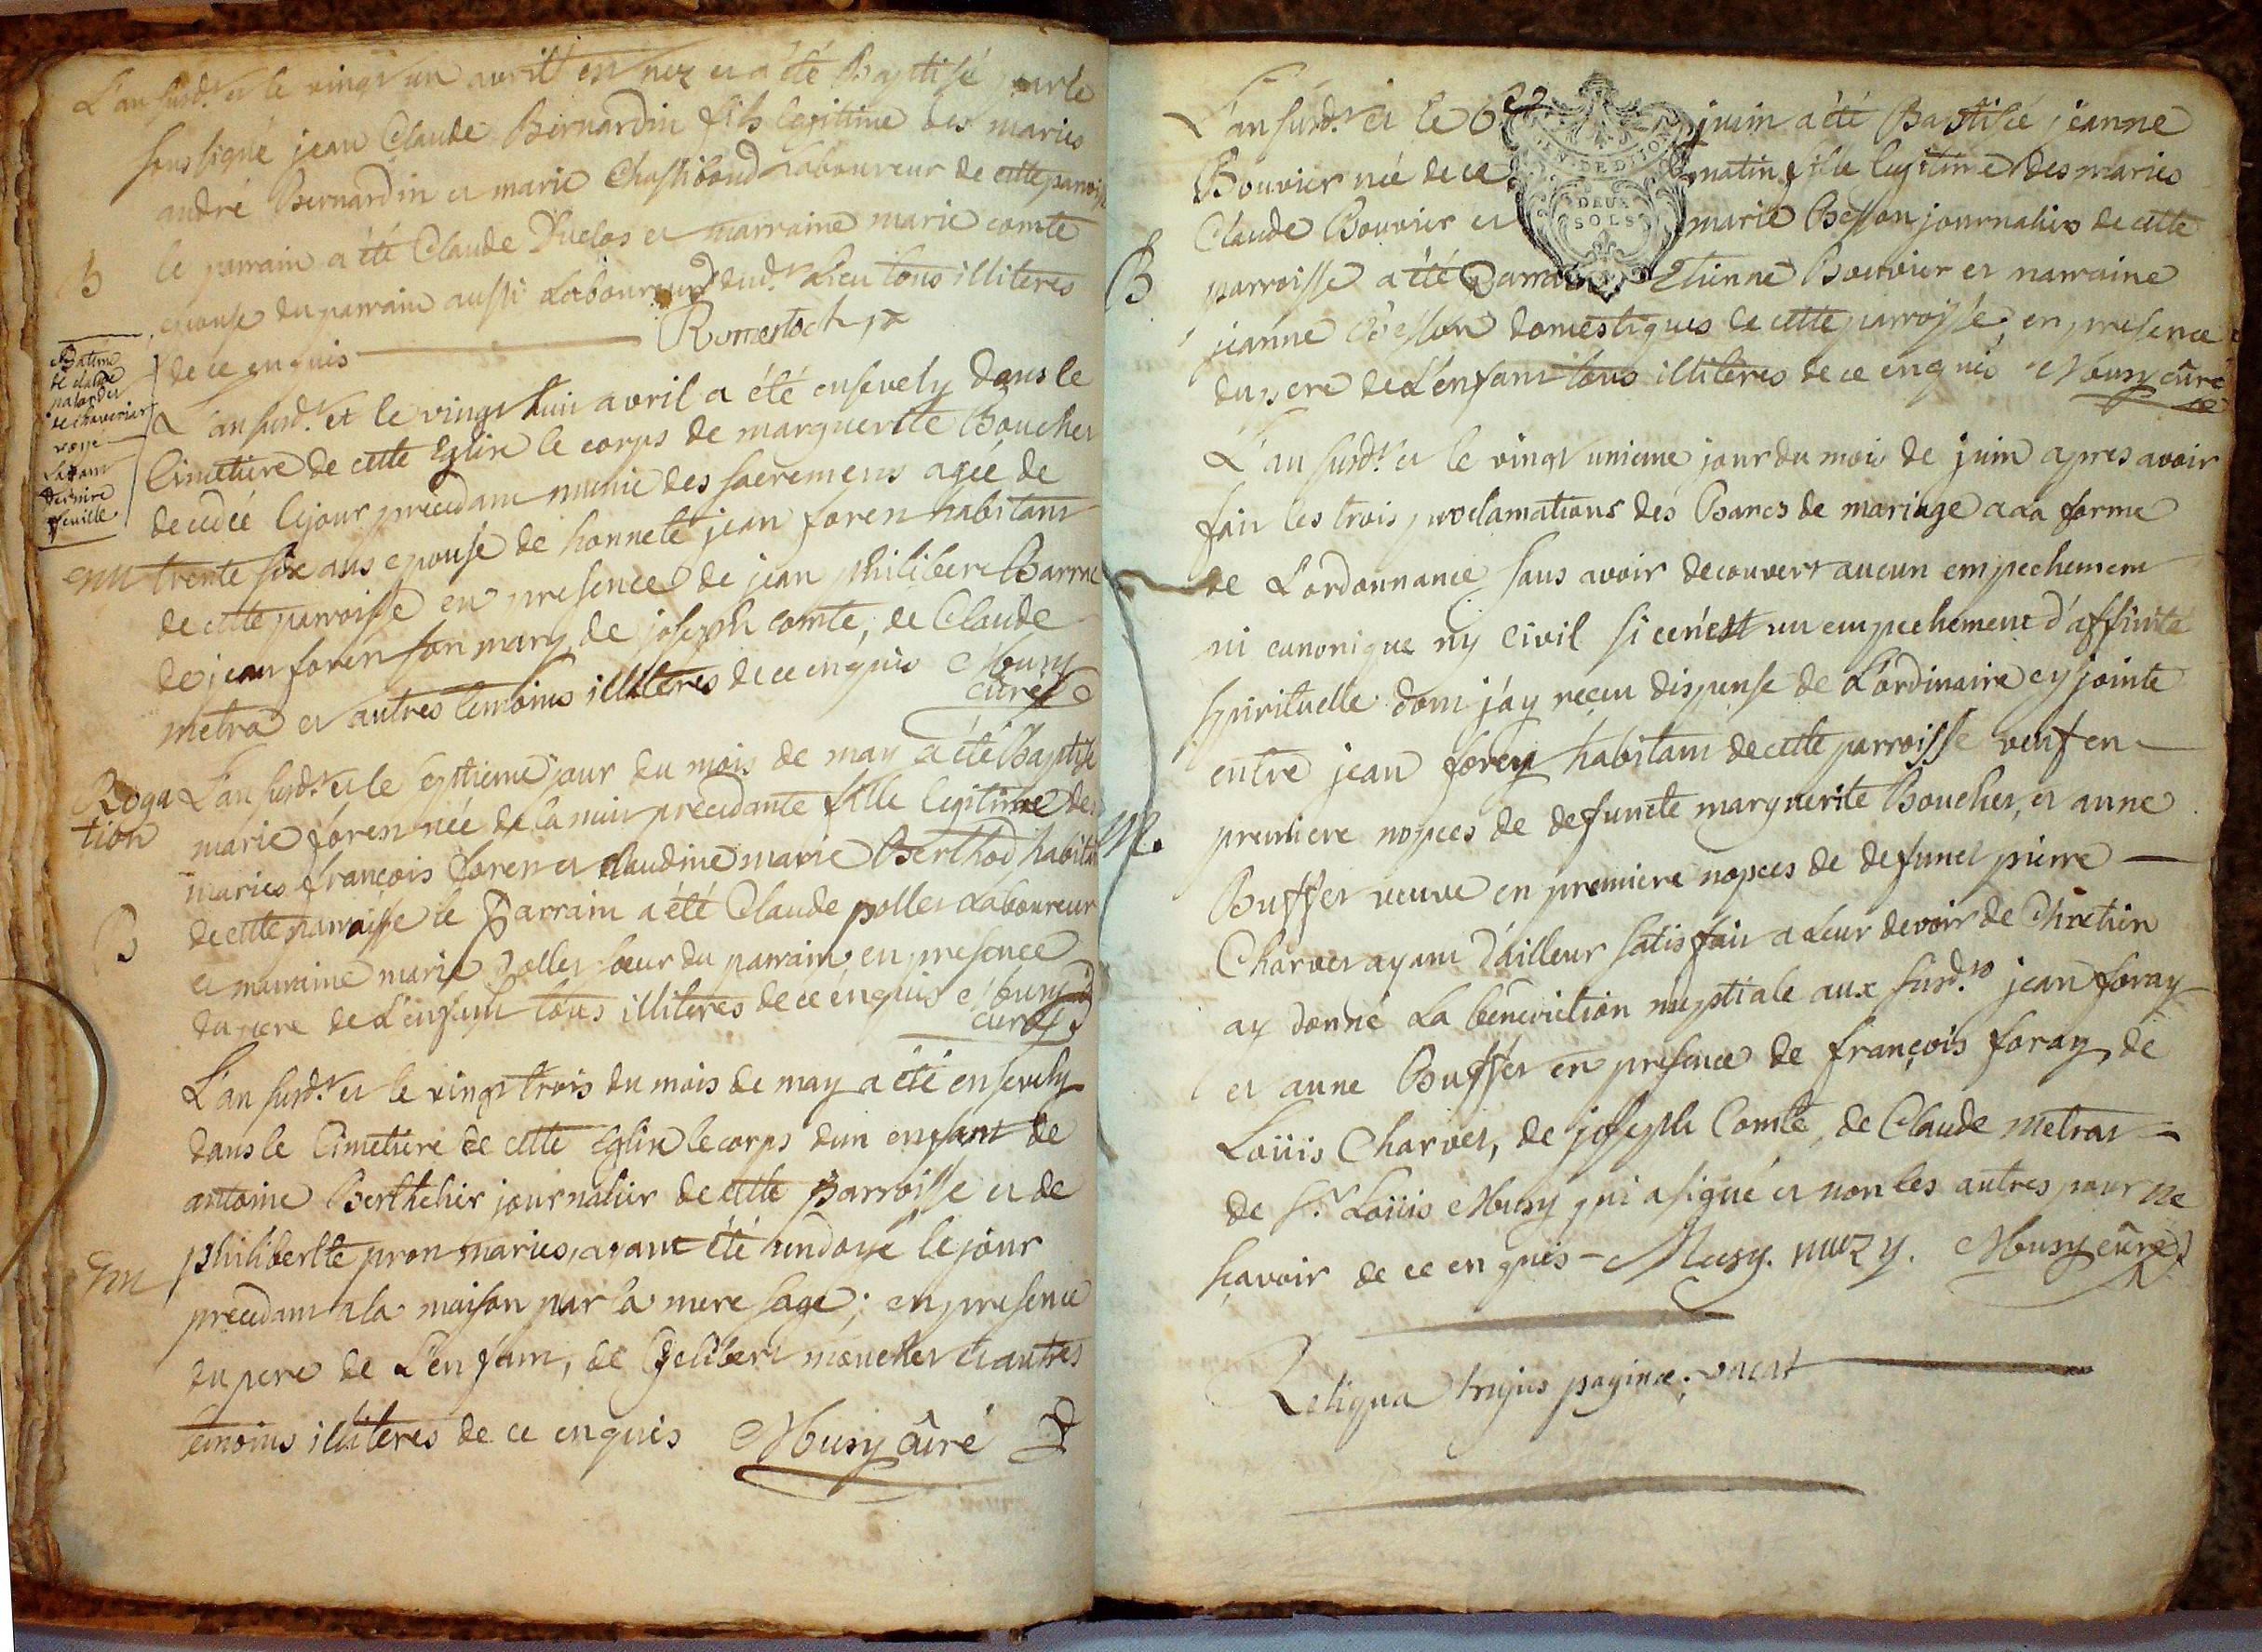 L'an susd.t et le vingt un avril est nez et a été Baptisé par le
soussigné jean Claude Bernardin fils legitime des maries
andré Bernardin et marie Chassibaud Laboureur de cette paroisse
B
le parrain a été Claude Duclos et marraine marie comte
epouse du parrain aussi Laboureur dud.t Lieu tous illiteres
de ce enquis Romestoch
Batême
de claude
de chaverier
voye
La
derniere
feuille
L'an susd.t et le vingt huit avril a été ensevely dans le
Cimetiere de cette Eglise le corps de marguerite Bouchet
decedée le jour precedant munie des sacremens agée de
enn trente six ans epouse de honneté jean foret habitant
de cette parroisse en presence de jean philibert Barrat
de jean foret son mary, de joseph comte, de Claude
metra et autres temoins illiteres de ce enquis Musy
curé
Roga
tion
L'an susd.t et le septieme jour du mois de may a été Baptisé
marie foret née de la nuit precedante fille legitime des
maries françois foret et claudine marie Berthod habitan
B
de cette parroisse le Parrain a été Claude pollet Laboureur
et marraine marie pollet sœur du parrain, en presence
du pere de L'enfant tous illiteres de ce enquis Musy
curé
L'an susd.t et le vingt trois du mois de may a été ensevely
dans le Cimetiere de cette Eglise le corps d'un enfant de
antoine Berthelier journalier de cette Parroisse et de
enn
philiberte pron maries, ayant été undoyé le jour
precedant a la maison par la mere sage; en presence
du pere de L'enfant, de Gelibert mouchet et autres
temoins illiteres de ce enquis Musy curé
L'an susd.t et le 6e juin a été Baptisée jeanne
Bouvier née de ce matin fille legitime des maries
Claude Bouvier et marie Besson journalier de cette
B
parroisse a été Parrain Etienne Bouvier et marraine
jeanne Besson domestiques de cette parroisse, en presence
du pere de L'enfant tous illiteres de ce enquis Musy curé
DE DIJON
DEUX
SOLS
L'an susd.t et le vingt unieme jour du mois de juin apres avoir
fait les trois proclamations des Bancs de mariage a la forme
de L'ordonnance sans avoir decouvert aucun empechement
ni canonique ny Civil si ce n'est un empechement d'affinité
spirituelle dont j'ay receu dispense de L'ordinaire cy jointe
entre jean forey habitant de cette parroisse veuf en
M.
premiere nopces de defuncte marguerite Bouchet, et anne
Buffet veuve en premiere nopces de defunct pierre
Charvet ayant d'ailleur satisfait a Leur devoir de Chretien
ay donné La benediction nuptiale aux susd.ts jean foray
et anne Buffet en presence de françois foray, de
Loüis Charvet, de joseph Comte, de Claude metrat
de S.r Loüis Musy qui a signé et non les autres pour ne
sçavoir de ce enquis - Musy. muzy. Musy curé
Reliqua hujus paginæ; vacat